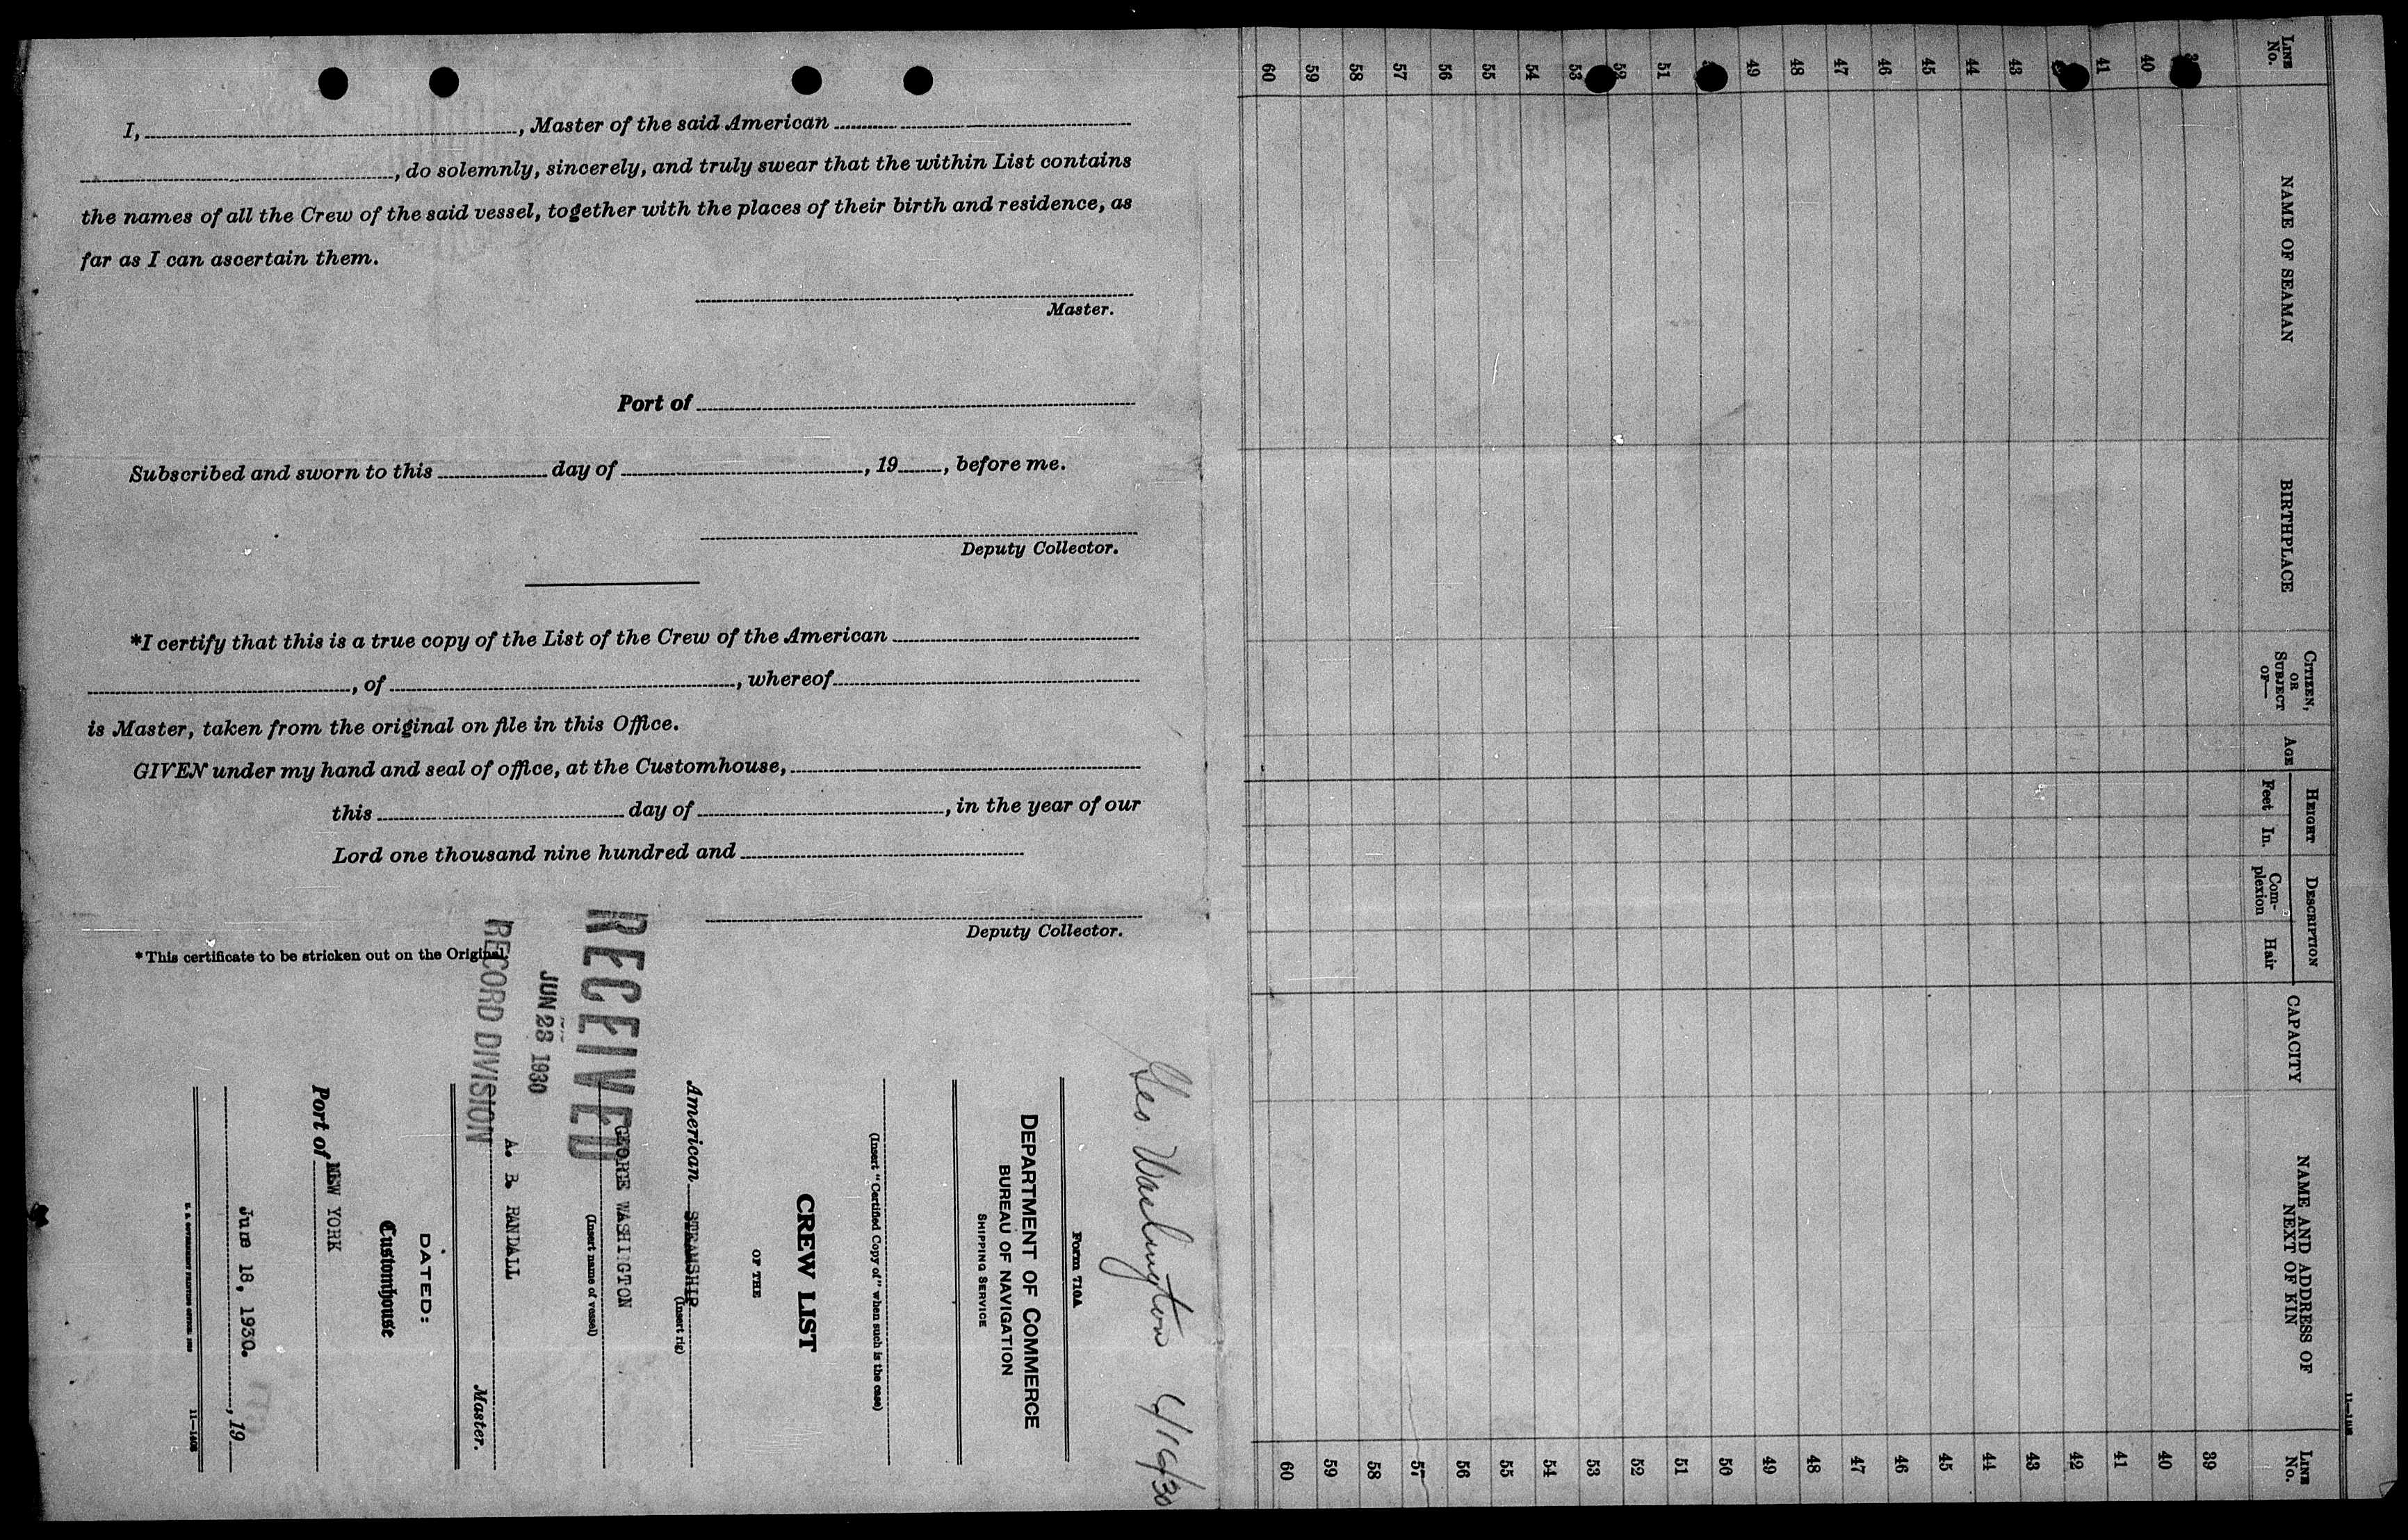 I, , Master of the said American
, do solemnly, sincerely, and truly swear that the within List contains
the names of all the Crew of the said vessel, together with the places of their birth and residence, as
far as I can ascertain them.
Master.
Port of
Subscribed and sworn to this day of , 19 , before me.
Deputy Collector.
*I certify that this is a true copy of the List of the Crew of the American
, of , whereof
is Master, taken from the original on file in this Office.
GIVEN under my hand and seal of office, at the Customhouse,
this day of , in the year of our
Lord one thousand nine hundred and
Deputy Collector.
*This certificate to be stricken out on the Original.
Geo Washington 6/16/30
Form 710A
DEPARTMENT OF COMMERCE
BUREAU OF NAVIGATION
SHIPPING SERVICE
(Insert "Certified Copy of" when such is the case)
CREW LIST
OF THE
American STEAMSHIP
(Insert rig)
GEORGE WASHINGTON
(Insert name of vessel)
RECEIVED
JUN 23 1930
RECORD DIVISION
A. B. RANDALL
Master.
DATED:
Customhouse
Port of NEW YORK
June 18, 1930. , 19
U. S. GOVERNMENT PRINTING OFFICE
11—1408
LINE No.
NAME OF SEAMAN
BIRTHPLACE
CITIZEN, OR SUBJECT OF—
AGE
HEIGHT
Feet
In.
DESCRIPTION
Complexion
Hair
CAPACITY
NAME AND ADDRESS OF NEXT OF KIN
LINE No.
39
40 40
41 41
42
43 43
44 44
45 45
46 46
47 47
48 48
49 49
50
51 51
52 52
53 53
54 54
55 55
56 56
57 57
58 58
59 59
60 60